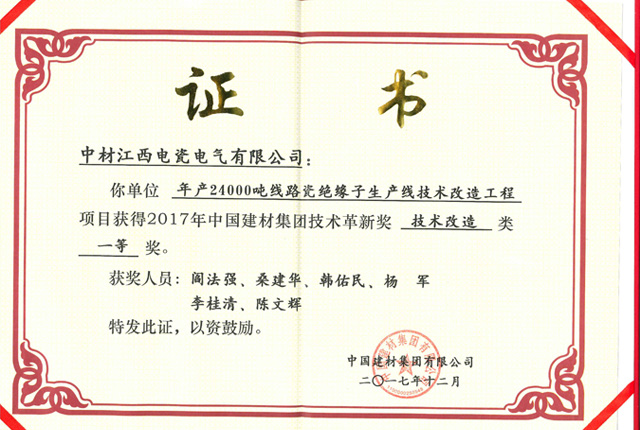 证书
中材江西电瓷电气有限公司：
你单位 年产24000吨线路瓷绝缘子生产线技术改造工程
项目获得2017年中国建材集团技术革新奖 技术改造 类
一等 奖。
获奖人员：阎法强、桑建华、韩佑民、杨 军
李桂清、陈文辉
特发此证，以资鼓励。
中国建材集团有限公司
二〇一七年十二月
中国建材集团有限公司